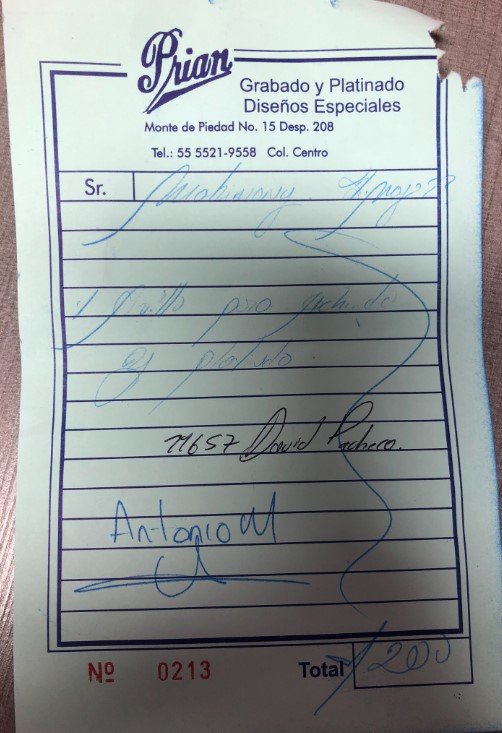 Prian
Grabado y Platinado
Diseños Especiales
Monte de Piedad No. 15 Desp. 208
Tel.: 55 5521-9558 Col. Centro
Sr.
1 para
platinado
11657 David Pacheco.
Antonio M
Nº 0213 Total 200